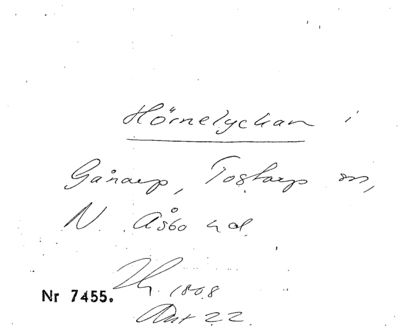 Hörnelyckan i
Gånarp, Tostarp sn,
N. Åsbo hd.
1808
Nr 7455.
Akt 22